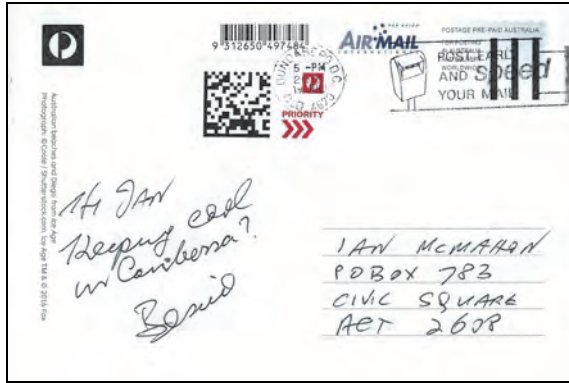 9 312650 497484
AIR MAIL
INTERNATIONAL
POSTAGE PRE-PAID AUSTRALIA
POST EARLY
AND speed
YOUR MAIL
5 -PM
QLD 4870
PRIORITY
Australian beaches and Diego from Ice Age
Photograph: ©Coole / Shutterstock.com. Ice Age TM & © 2016 Fox
HI IAN
Keeping cool
in Canberra?
IAN MCMAHON
PO BOX 783
CIVIC SQUARE
ACT 2608